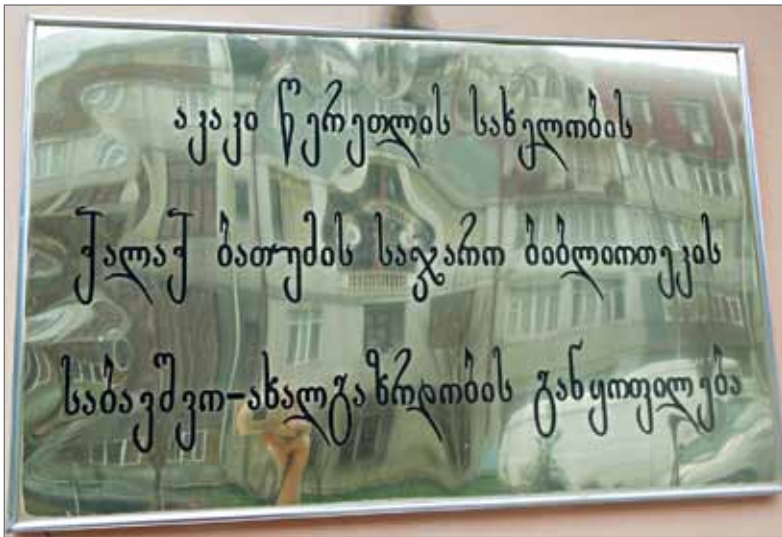 აკაკი წერეთლის სახელობის
ქალაქ ბათუმის საჯარო ბიბლიოთეკის
საბავშვო-ახალგაზრდობის განყოფილება